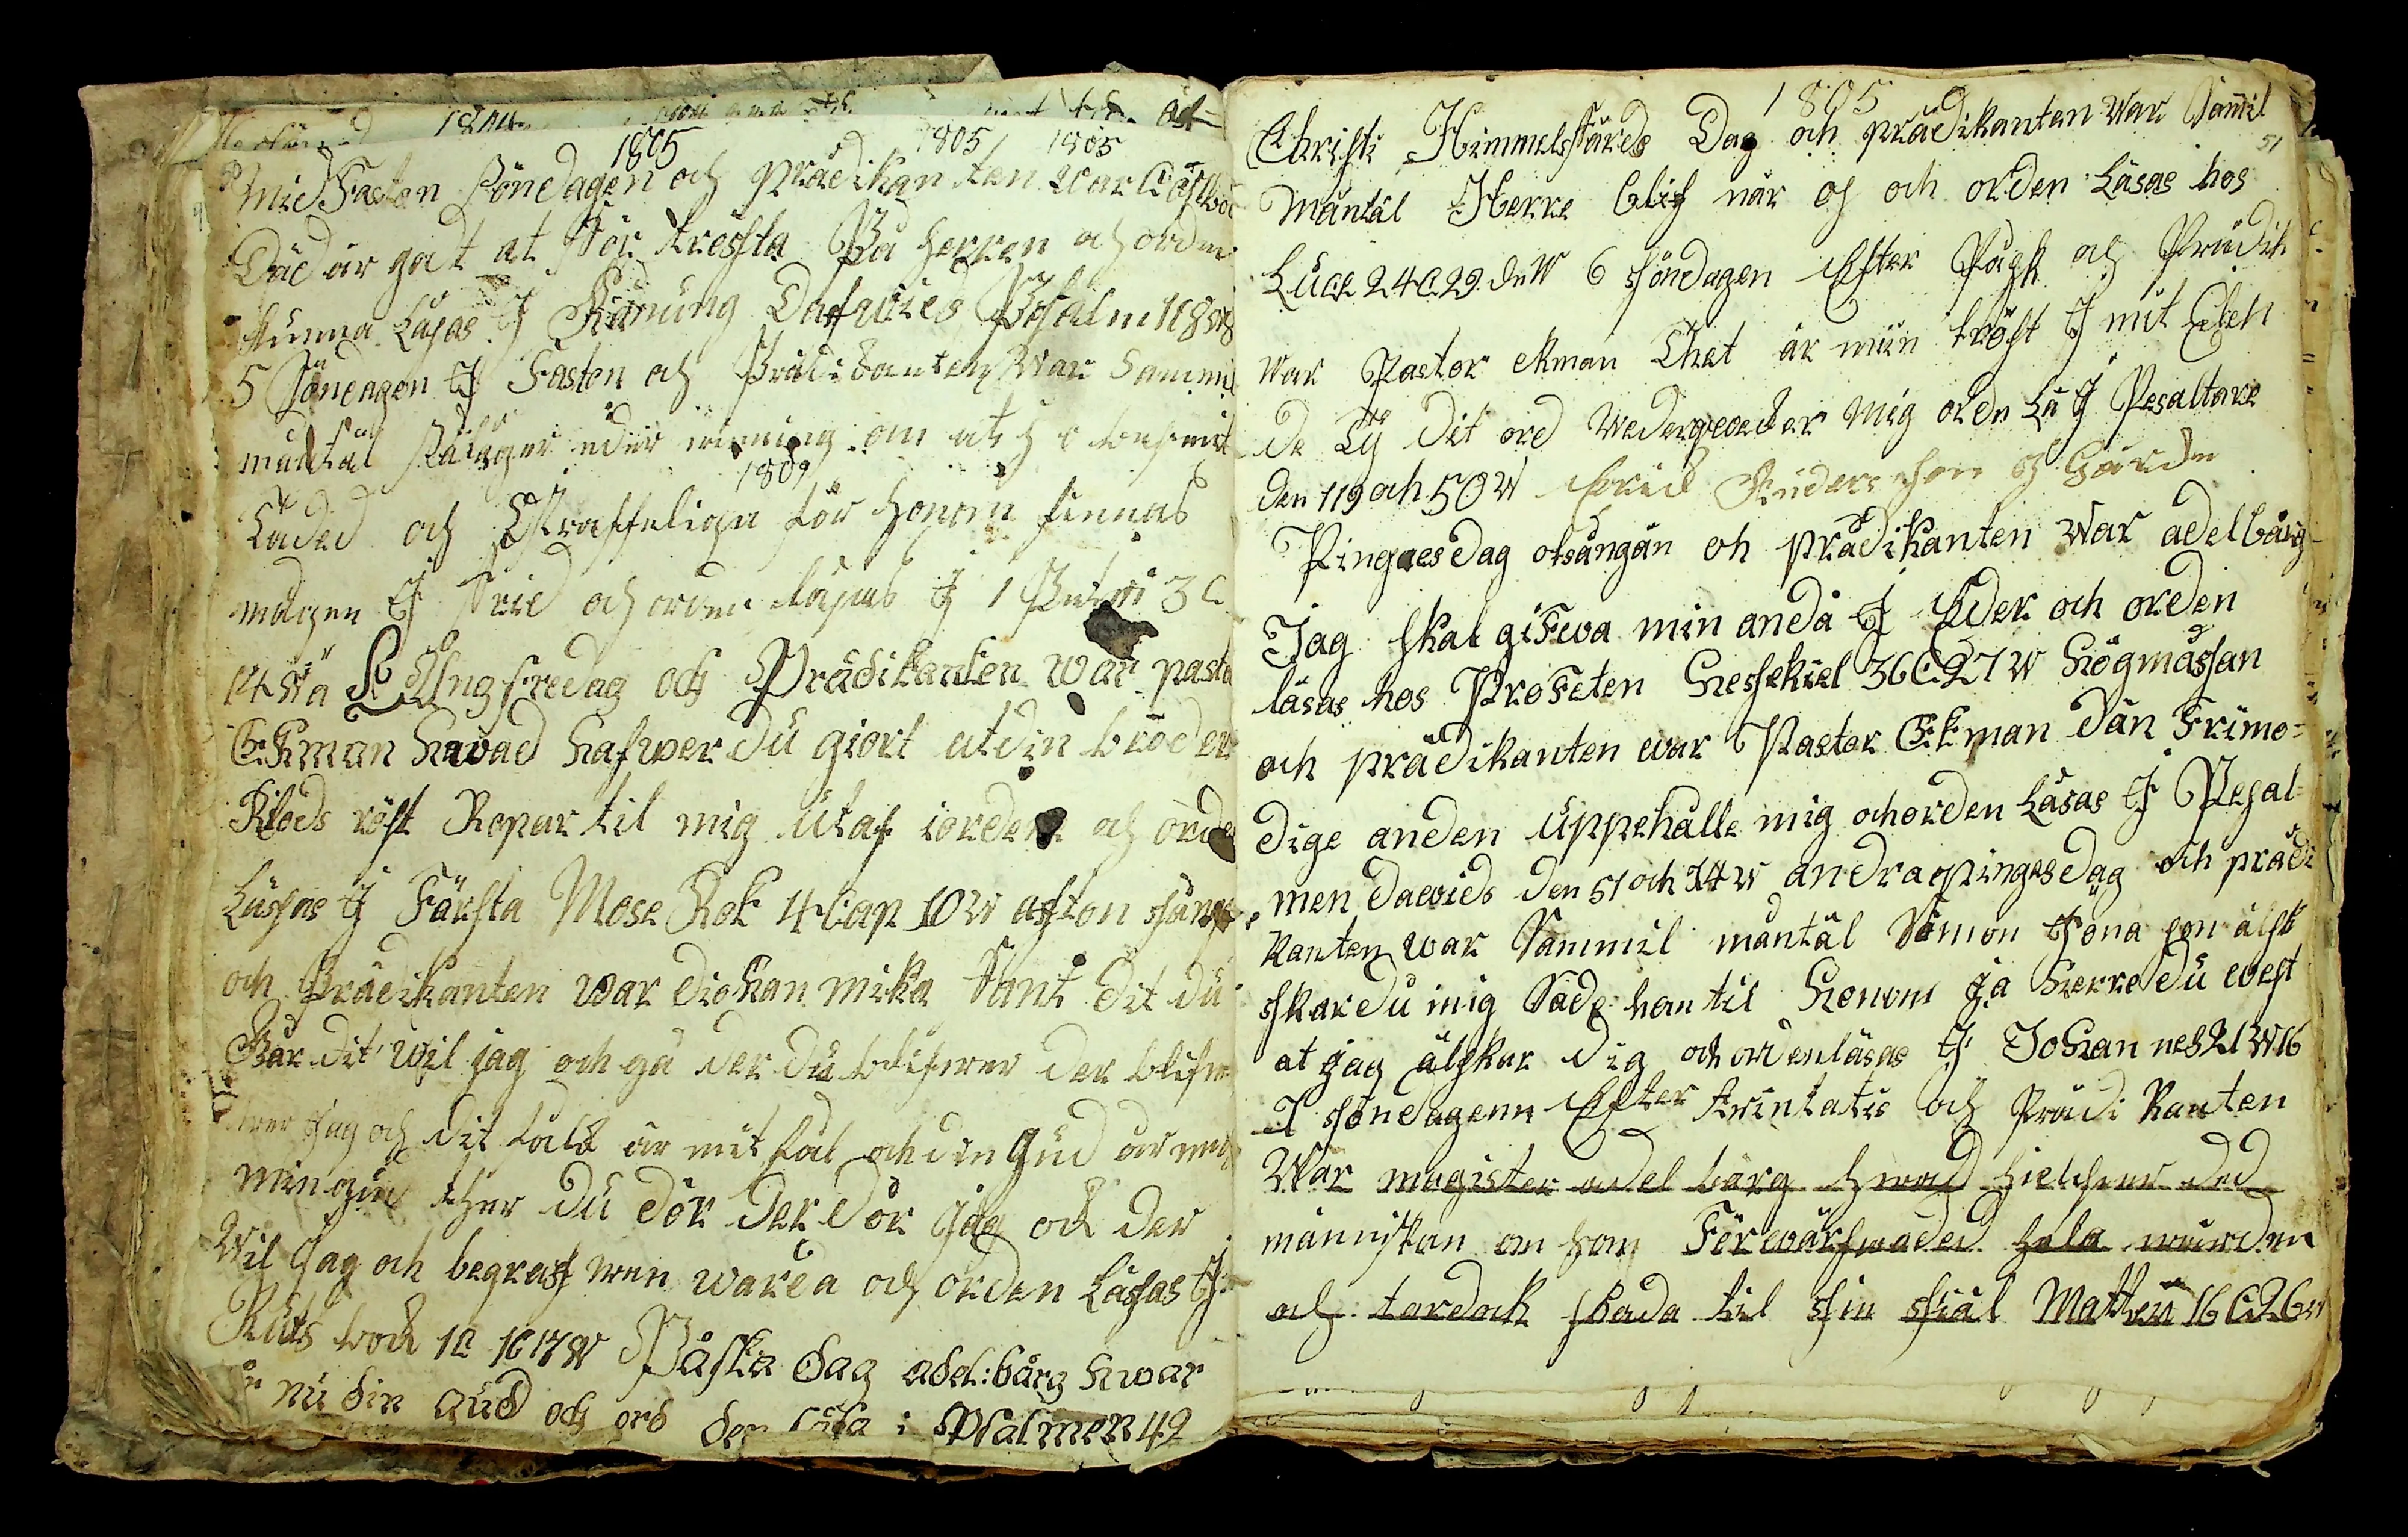 1804
1805 1805 1805
Mid Faston Söndagen och prädikanten war
Däd är gåt at För tressta På herren och orden
stunna Läsas I Konung Dafwies Psalm 118
5 Söndagen I Faston och Prädikanten War Sammil
mäntäl eder winning om at
1809
Laded och Straffeliga för honom finnas
magen I Frid och orden läsas I 1 Petri 3 C
14 W å Långfredag och Prädikanten war pasto
Ekman hwad hafwer du giort at din broder
Blods röst Ropar til mig utaf iorden och orde
Läsas I Färsta Mose Bok 4 Cap 10 W afton sång
och Prädikanten war diohan mika Sant dit du
Går dit wil jag och gå der du blifwer der blifw
wer jag och dit falk är mit falk och din Gud är
min gud ther du dör der dör jag och der
Wil jag och begraf wen warda och orden Läsas I
Ruts bock 1 C 16 17 W Påska dag adel:bärg hwar
är nu din Gud och ord den läsa i Psalmen 42
1805
Christi Himmelsfärds Dag och prädikanten War Samil
51
Mäntäl Herre blif när os och orden Läsas hos
Luce 24 C 29 de W 6 söndagen Efter Påsk och Prädik
War Pastor ekman Thet är min tröst I mit Elen
de Ty dit ord Wedergwecker Mig orde Lä I Pesaltare
den 119 och 50 W
Pingaesdag otsångån oh prädikanten War adelbärg
Jag skal giFwa min anda I Eder och orden
läsas hos ProFeten Hessekiel 36 C 27 W Högmässan
och prädikanten war Pastor Ekman dän Frimo=
dige anden uppehålle mig och orden Läsas I Pesal=
men dawids den 51 och 14 W andra pingesdag och prädi
kanten war Sammil mäntäl Simon Jona son älsk
skar du mig Sade han til Honom ja Herre du west
at jag älskar dig och orden läsas I Johannes 21 W 16
I söndagenn Efter trintatis och Prädi kanten
War magister adel bärg hwad hielper ded
människan om hon Förwärfwaded hela wärden
och tardock skada til sin siäl Matteu 16 C 26 W